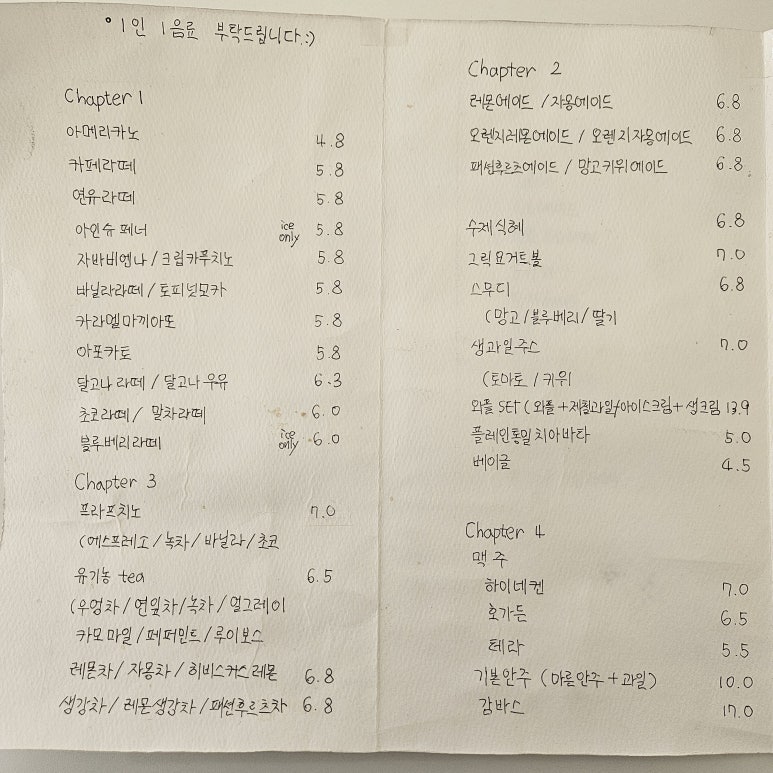 °1인 1음료 부탁드립니다.:)
Chapter 1
아메리카노 4.8
카페라떼 5.8
연유라떼 5.8
아인슈페너 ice only 5.8
자바비엔나/크림카푸치노 5.8
바닐라라떼/토피넛모카 5.8
카라멜마끼아또 5.8
아포카토 5.8
달고나라떼/달고나우유 6.3
초코라떼/말차라떼 6.0
블루베리라떼 ice only 6.0
Chapter 3
프라프치노 7.0
(에스프레소/녹차/바닐라/초코
유기농 tea 6.5
(우엉차/연잎차/녹차/얼그레이
카모마일/페퍼민트/루이보스
레몬차/자몽차/히비스커스레몬 6.8
생강차/레몬생강차/패션후르츠차 6.8
Chapter 2
레몬에이드/자몽에이드 6.8
오렌지레몬에이드/오렌지자몽에이드 6.8
패션후르츠에이드/망고키위에이드 6.8
수제식혜 6.8
그릭요거트볼 7.0
스무디 6.8
(망고/블루베리/딸기
생과일주스 7.0
(토마토/키위
와플 SET (와플+제철과일+아이스크림+생크림 13.9
플레인통밀치아바타 5.0
베이글 4.5
Chapter 4
맥주
하이네켄 7.0
호가든 6.5
테라 5.5
기본안주 (마른안주+과일) 10.0
감바스 17.0